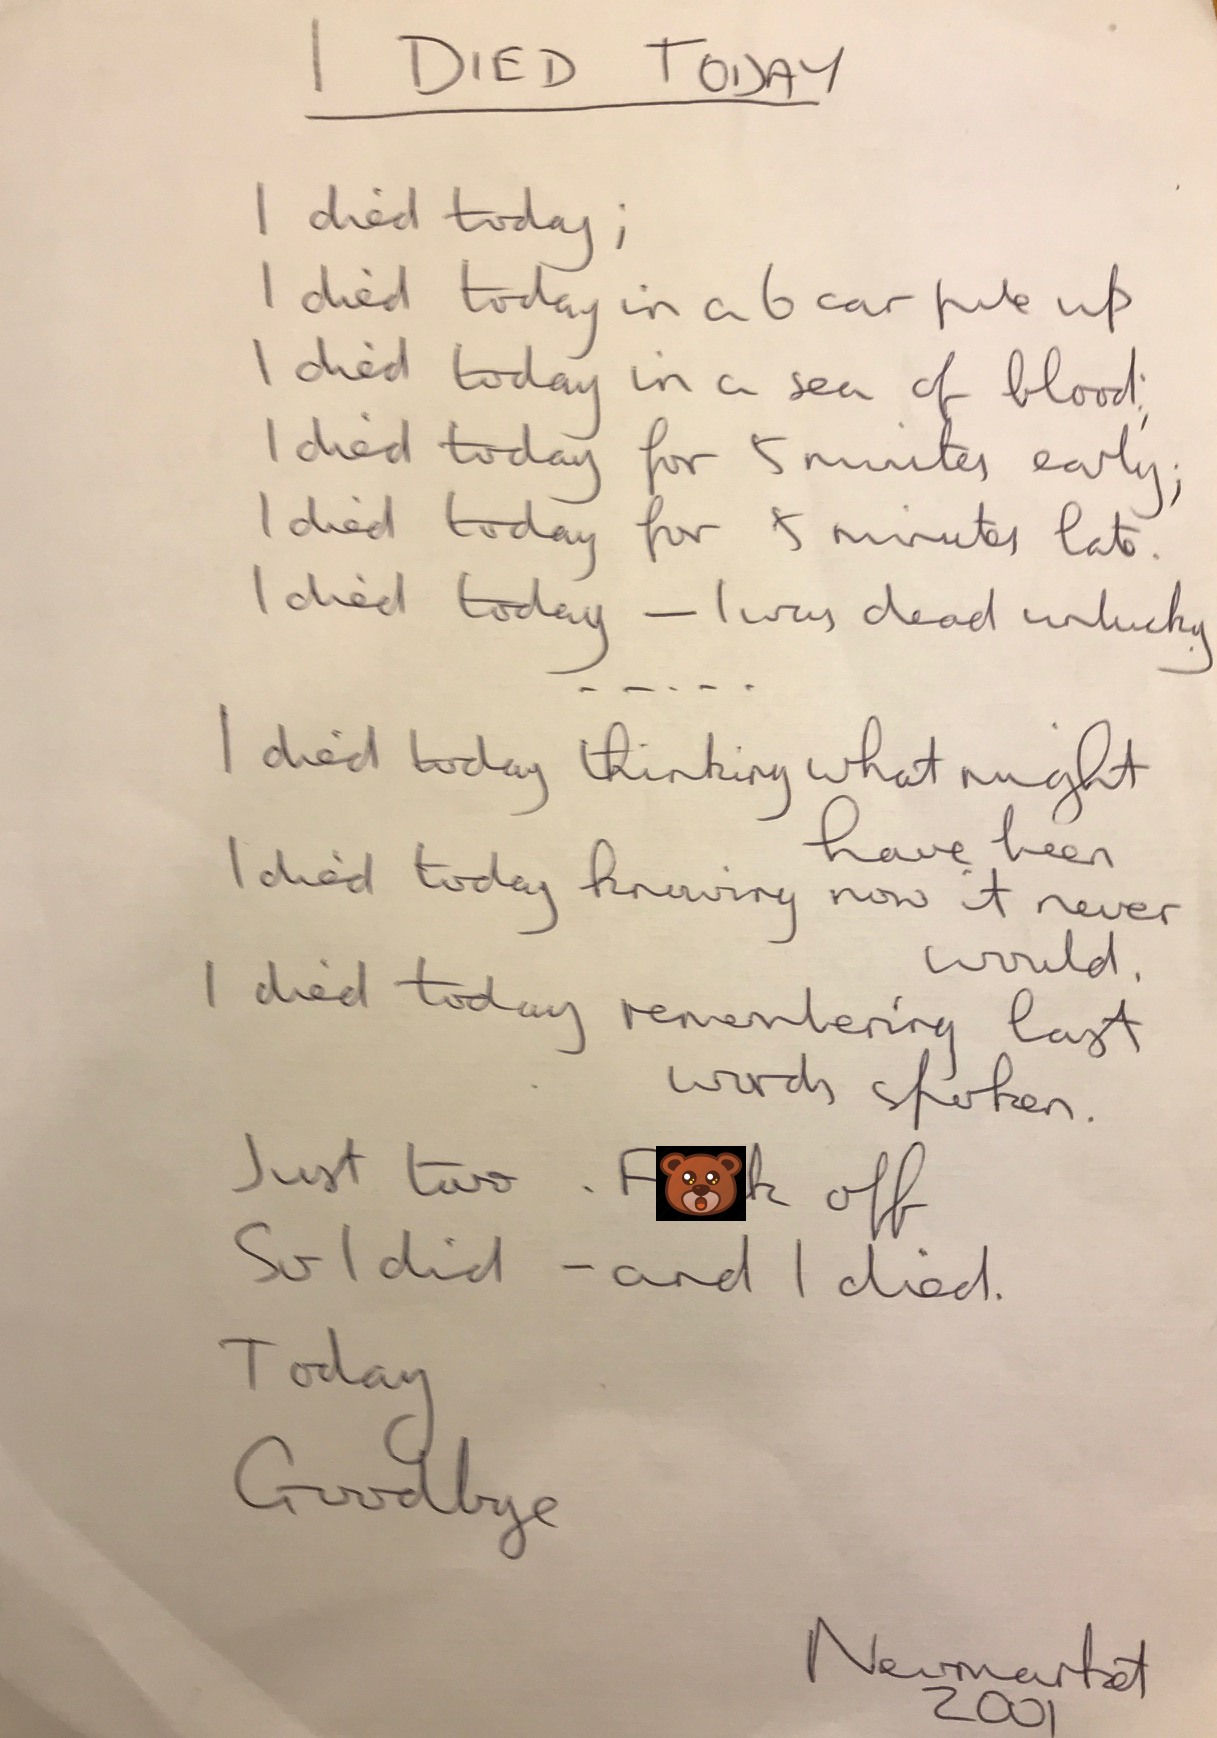 I DIED TODAY
I died today;
I died today in a 6 car pile up
I died today in a sea of blood;
I died today for 5 minutes early;
I died today for 5 minutes late.
I died today – I was dead unlucky
-----
I died today thinking what might
have been
I died today knowing now it never
would.
I died today remembering last
words spoken.
Just two. F k off
So I did – and I died.
Today
Goodbye
Newmarket
2001